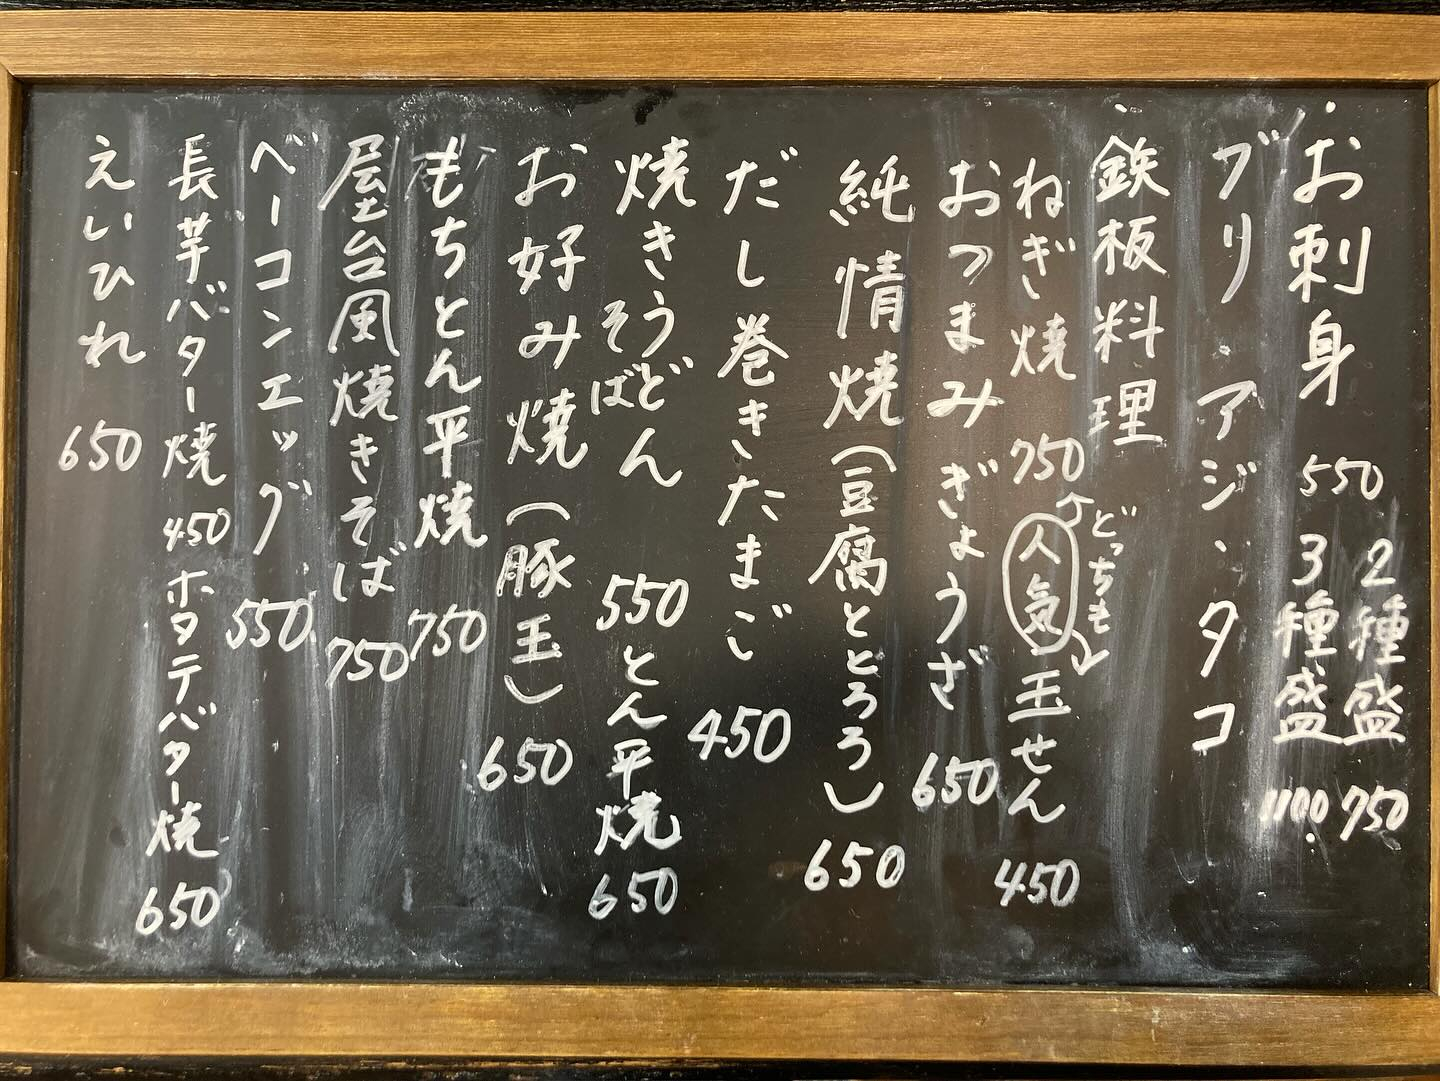 お刺身 550 2種盛 750
3種盛 1100
ブリ アジ・タコ
鉄板料理
ねぎ焼 750 人気 玉せん 450
どっちも
おつまみぎょうざ 650
純情焼(豆腐ととろろ) 650
だし巻きたまご 450
焼きうどん
そば 550 とん平焼 650
お好み焼(豚玉) 650
もちとん平焼 750
屋台風焼きそば 750
ベーコンエッグ 550
長芋バター焼 450 ホタテバター焼 650
えいひれ 650